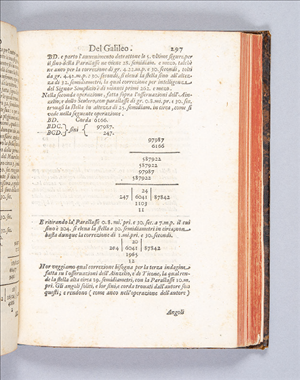 Del Galileo. 297
BD. e porto l'augumento detrattone le 5. ultime figure, per
il sino della Parallasse ne viene 28. semidiam. e mezo, sicchè
ne anco per la correzion di gr. 4. 22. m. p. e 30. secondi, tolti
da gr. 4. 42. m. p. e 30. secondi, si eleva la stella sino all'altez-
za di 32. semidiametri, la qual correzione per intelligenza
del Signor Simplicio è di minuti primi 262. e mezo.
Nella seconda operazione, fatta sopra l'osservazioni dell'Ain-
zelio, e dello Schulero, con parallasse di gr. 0. 8. mi. pr. e 30. sec.
trovasi la stella in altezza di 25. semidiam. in circa, come si
vede nella seguente operazione.
BD. Corda 6166.
BDC. } sini { 97987.
BCD. 247.
97987
6166
587922
587922
97987
587922
24
247 | 6041 | 87842
1103
11
E ritirando la Parallasse 0. 8. mi. pri. e 30. sec. a 7. m. p. il cui
sino è 204. si eleva la stella a 30. semidiametri in circa;
basta dunque la correzione di 1. mi. pri. e 30. secondi.
20
204 | 6041 | 87842
1965
12
Hor veggiamo qual correzione bisogna per la terza indagine
fatta su l'osservazioni dell'Ainzelio, e di Ticone, la qual ren-
de la stella alta circa 19. semidiametri, con la Parallasse 10. m.
pri. Gli angoli soliti, e lor sini, e corda trovati dall'autore son
questi; e rendono (come anco nell'operazione dell'autore)
Angoli